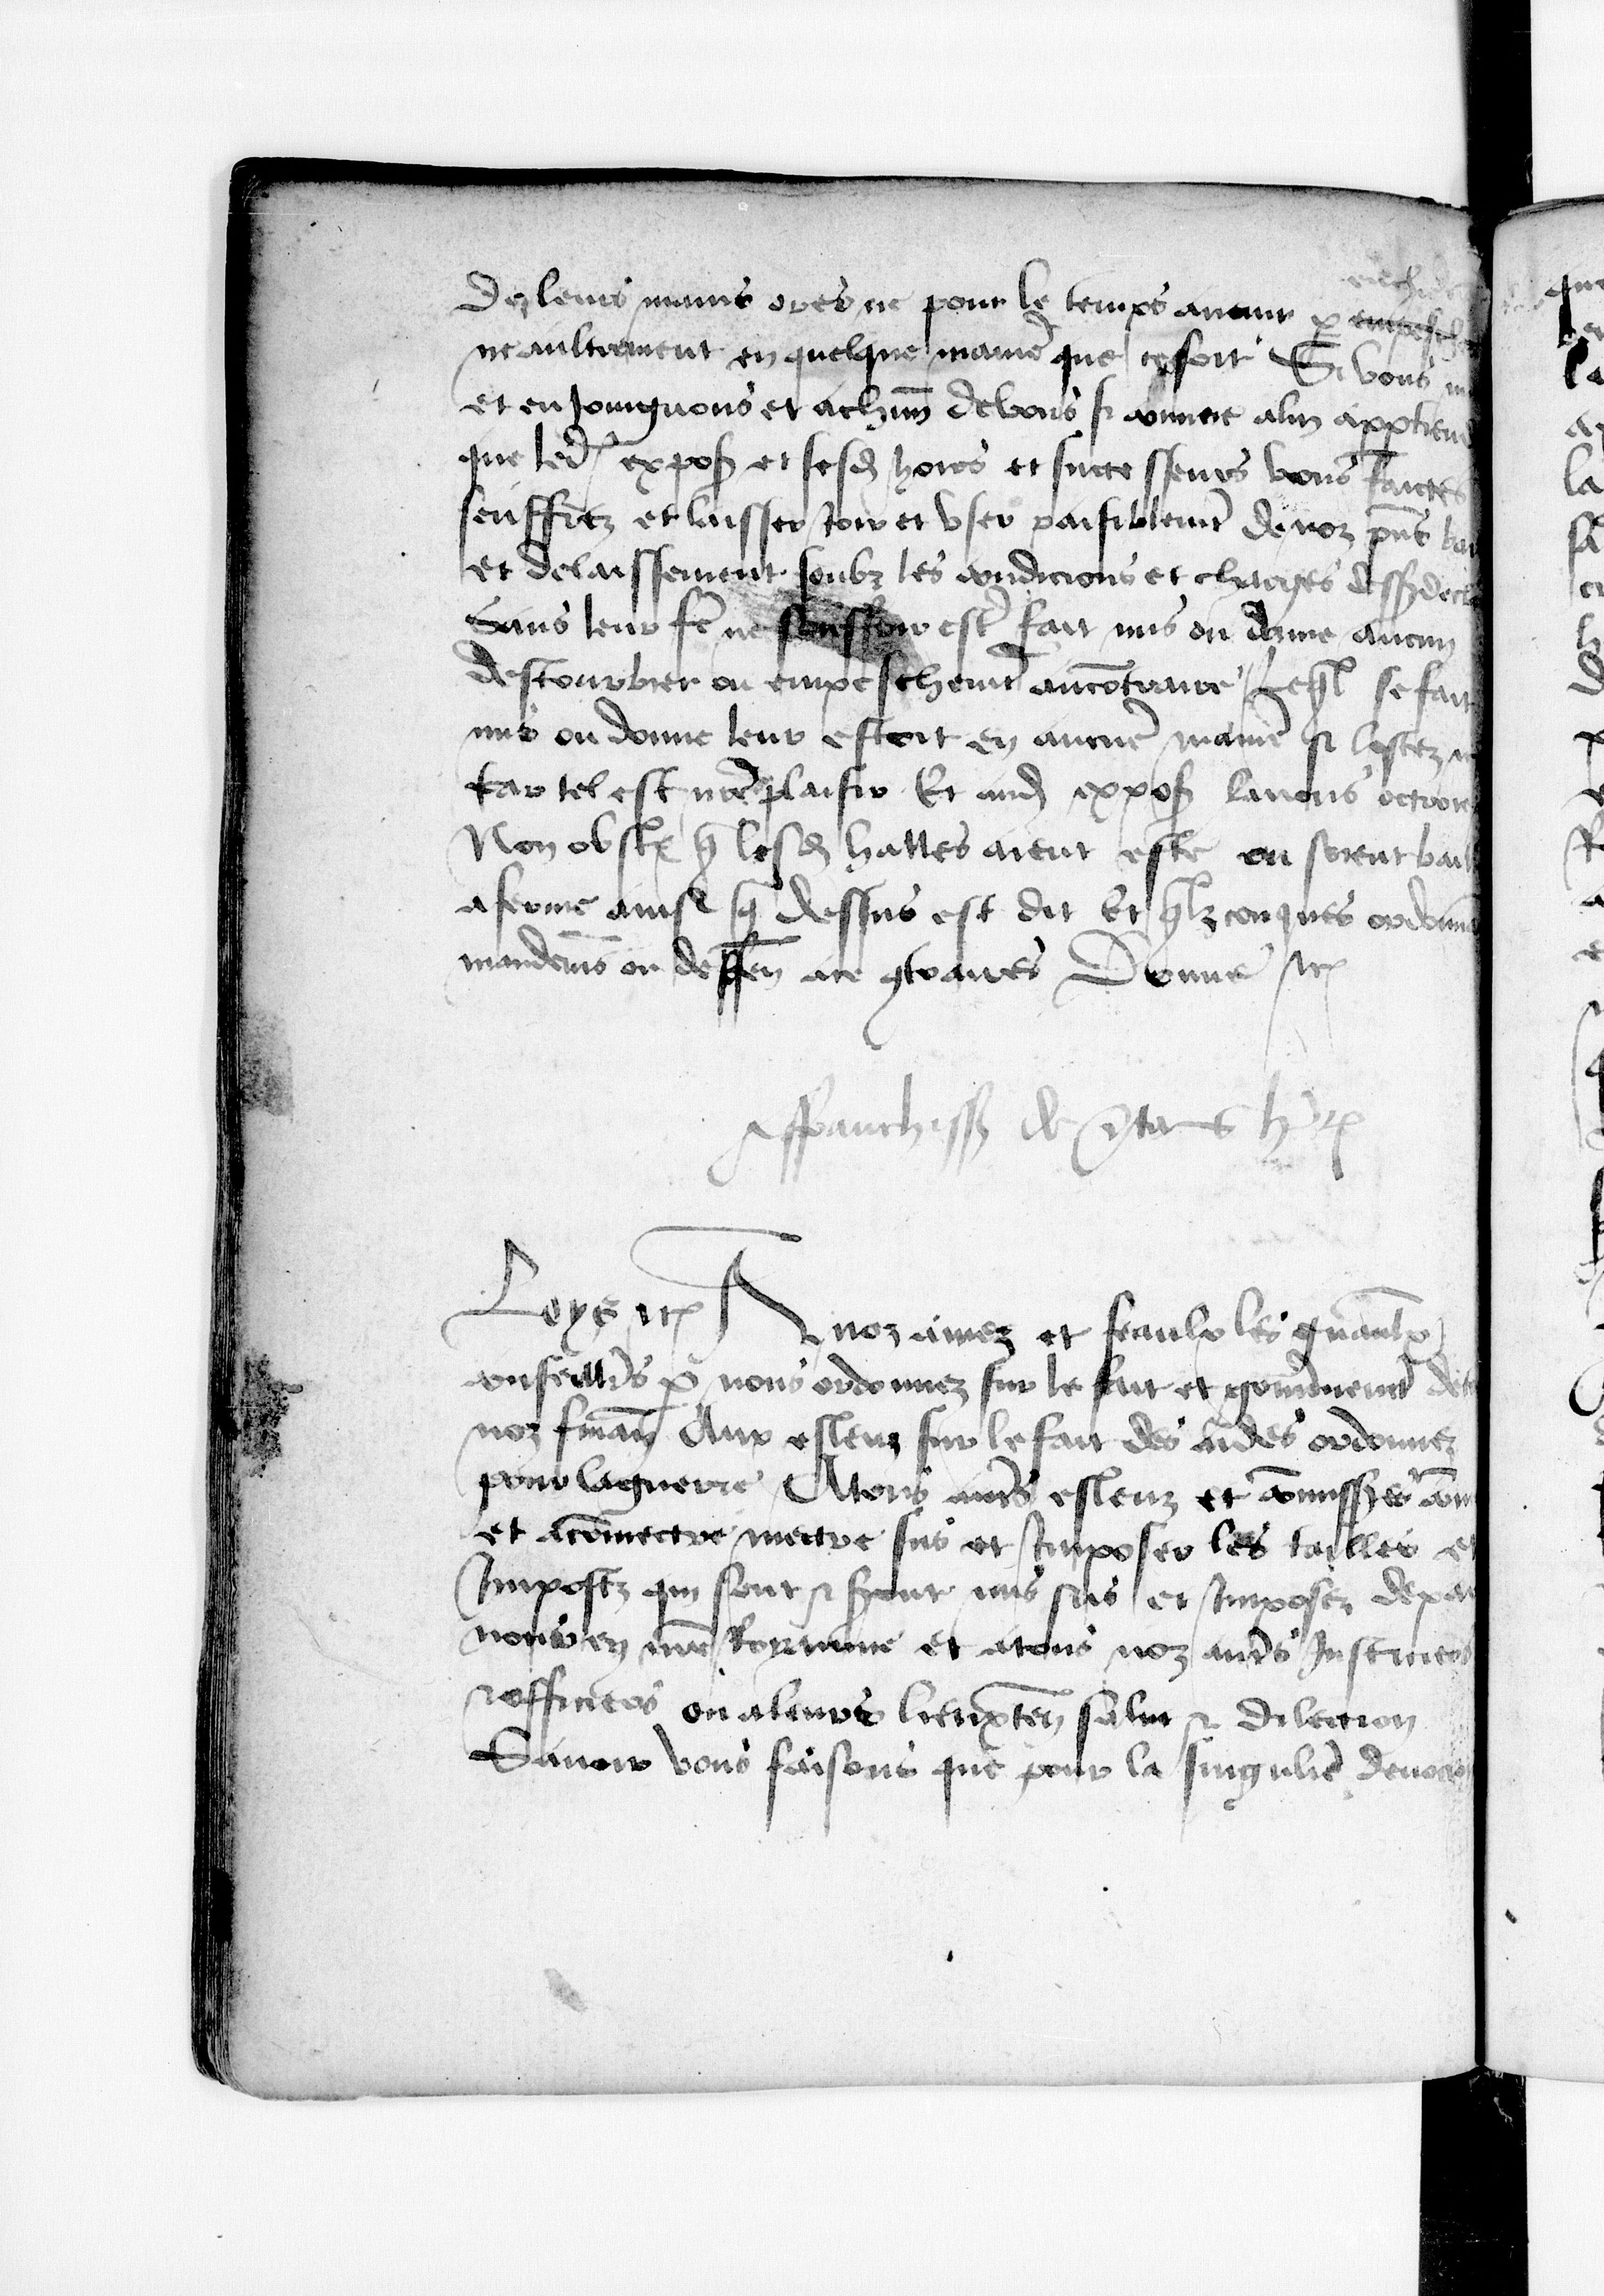 De leurs mains ores ne pour le temps auenir p
ne aultrement en quelque manie que ce soit Si vous
et enjoingnons et a chun de vous si comme a luy appttiend
que led expos et sesd hoirs et successeurs vous faictes
seuffrez et laisser joir et vser paisiblemt de noz pns bai
et delaissement soubz les condicions et charges dessd decl
Sans leur fe ne souffrir estre fait mis ou donne aucun
destourbier ou empeschemt au contraire Leql se fait
mis ou donne leur estoit en aucune manie si lostez
Car tel est nre plaisir Et aud expos lauons octroie
Non obst q lesd halles aient este ou soient bail
a ferme ainsi q dessus est dit Et qlzconques ordonn
mandems ou deffen a ce gtraires Donne etc
Affranchiss de
Loys etc A noz amez et feaulx les gnaulx
conseillrs p nous ordonnez sur le fait et gouuernemt de
noz finan Aux esleuz sur le fait des aides ordonnez
pour la guerre A tous autrs esleuz et commissres com
et a commectre mectre sus et Imposer les tailles et
Impostz qui sont et seront mis sus et Imposez de par
nous en nre Royaume et a tous noz autrs Justiciers
et officiers ou a leurs lieuxten salut et dilection
Sauoir vous faisons que pour la singulie deuocio